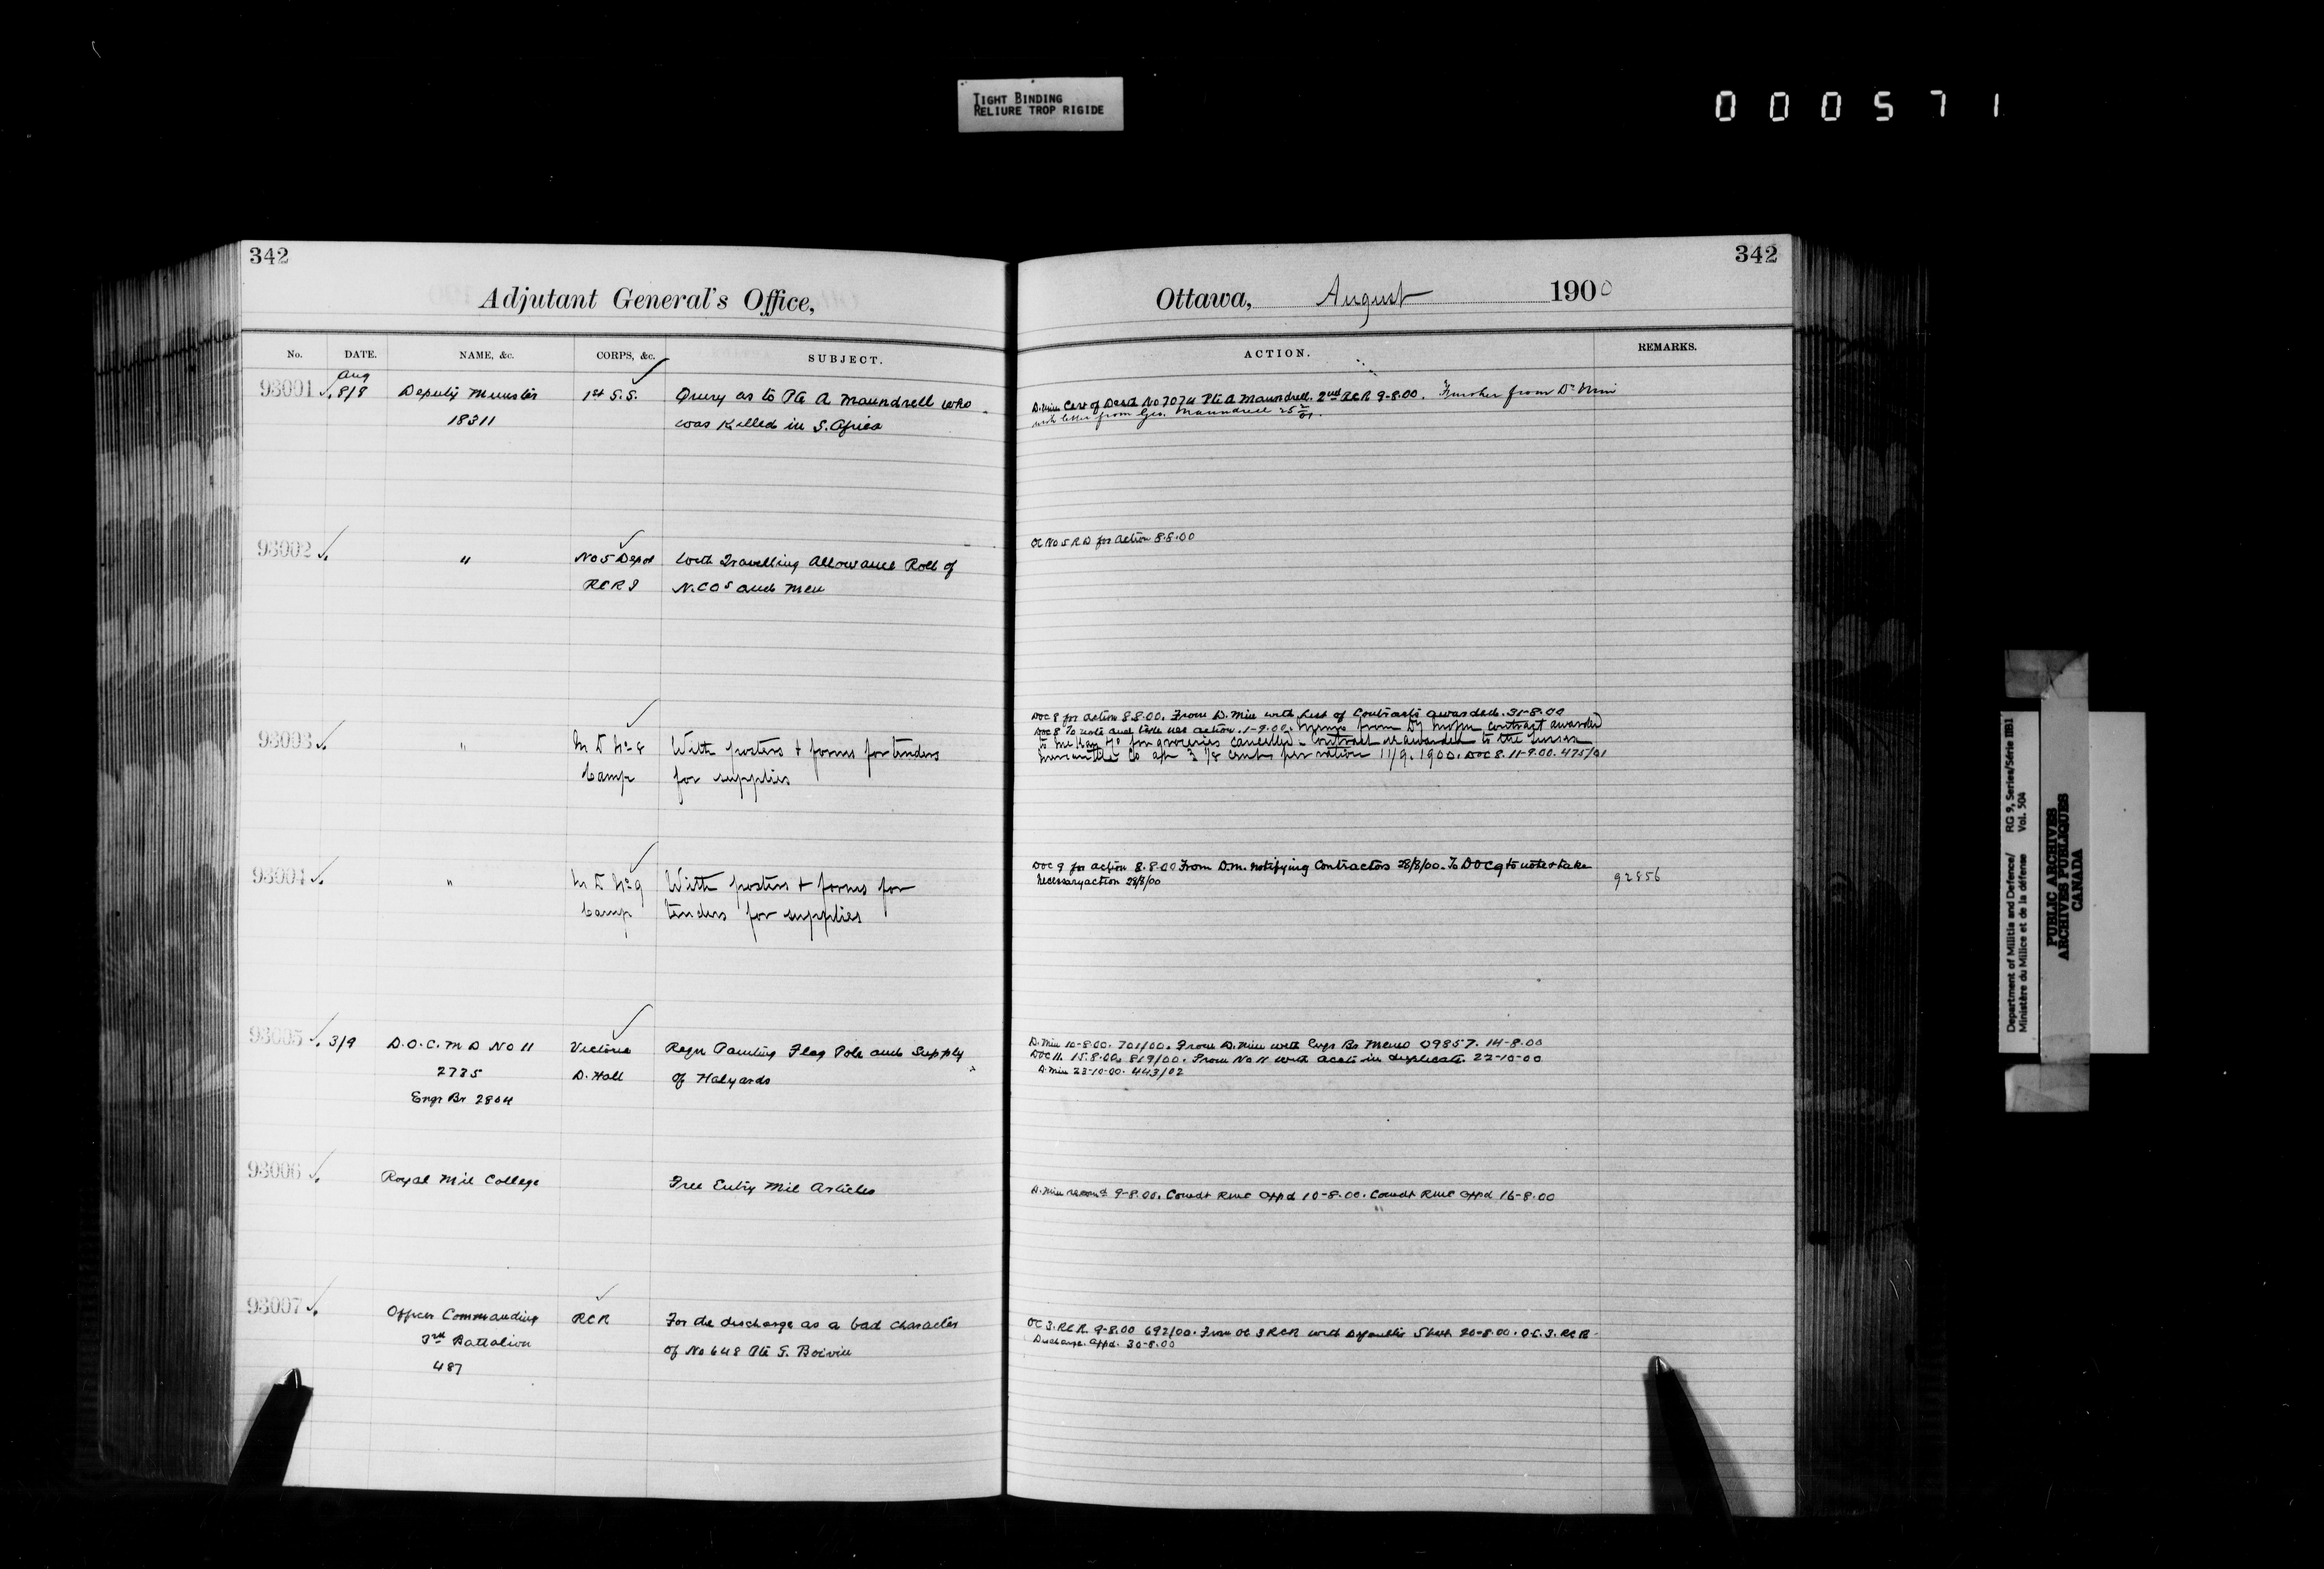 TIGHT BINDING
RELIURE TROP RIGIDE
000571
342
Adjutant General's Office,
No. DATE. NAME, &c. CORPS, &c. SUBJECT.
Aug
93001 8/8 Deputy Minister 1st S.S. Query as to Pte A Maundrell who
18311 was killed in S. Africa
93002 " No 5 Depot With Travelling Allowance Roll of
RCRI N.COs and Men
93003 " M D No 8 With posters & forms for tenders
Camp for supplies
93004 " M D No 9 With posters & forms for
Camp tenders for supplies
93005 3/9 D.O.C. M D No 11 Victoria Regn Painting Flag Pole and Supply
2735 D. Hall of Halyards
Engr Br 2804
93006 Royal Mil College Free Entry Mil Articles
93007 Officer Commanding RCR For the discharge as a bad character
3rd Battalion of No 648 Pte Boivin
487
342
Ottawa, August 1900
ACTION. REMARKS.
D. Min Cert of Death No 7074 Pte A Maundrell. 2nd RCR 9-8.00. Further from Dy Min
with letter from Geo. Maundrell
OC No 5 R D for action 8.8.00
DOC 8 for action 8.8.00. From D. Min with List of Contracts awarded. 31-8.00
DOC 8 To note and take nec action. 1-9.00. from Dy contract awarded
to for groceries cancelled. Contract reawarded to the
Co at 3 7/8 cents per ration 11/9. 1900. DOC 8. 11-9.00. 475/01
DOC 9 for action 8.8.00 From D.M. notifying Contractors 28/8/00. To DOC 9 to note & take
necessary action 28/8/00 92856
D. Min 10-8.00. 701/00. From D. Min with Engr Br Memo 09857. 14-8.00
DOC 11. 15.8.00. 819/00. From No 11 with accts in duplicate. 22-10-00
D. Min 23-10-00. 443/02
D. Min 9-8.00. Comdt RMC appd 10-8.00. Comdt RMC appd 16-8.00
OC 3. RCR 9-8.00 692/00. From OC 3 RCR with Defaulter Sheet 20-8.00. O.C. 3. RCR
Discharge. Appd. 30-8.00
Department of Militia and Defence/ RG 9, Series/Série IIB1
Ministère du Milice et de la défense Vol. 504
PUBLIC ARCHIVES
ARCHIVES PUBLIQUES
CANADA